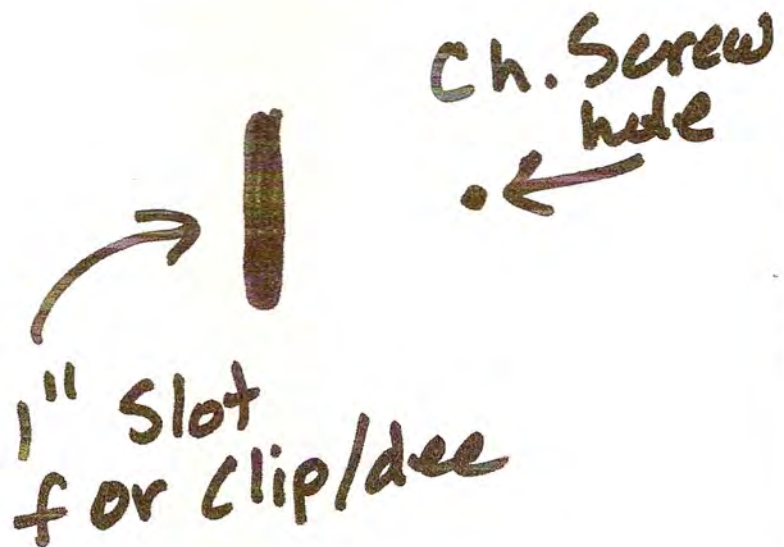 Ch. Screw
hole
1" Slot
for Clip/dee